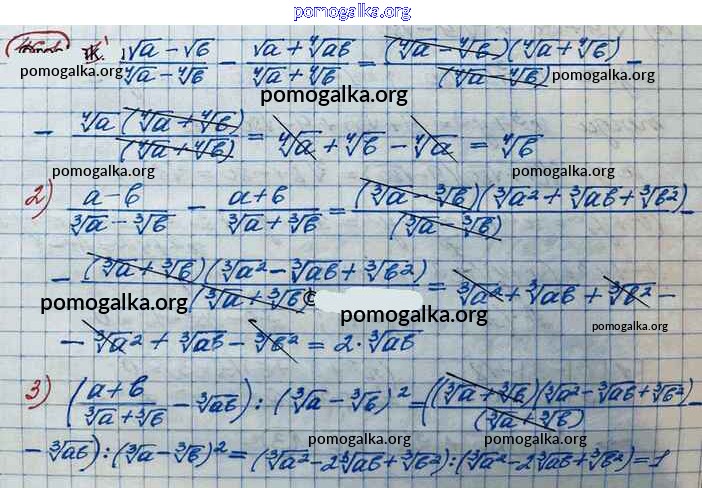 pomogalka.org
(√a - √b)/(⁴√a - ⁴√b) - (√a + ⁴√ab)/(⁴√a + ⁴√b) = (⁴√a - ⁴√b)(⁴√a + ⁴√b)/(⁴√a - ⁴√b) -
pomogalka.org pomogalka.org pomogalka.org
- ⁴√a (⁴√a + ⁴√b)/(⁴√a + ⁴√b) = ⁴√a + ⁴√b - ⁴√a = ⁴√b
pomogalka.org pomogalka.org
2) (a - b)/(³√a - ³√b) - (a + b)/(³√a + ³√b) = (³√a - ³√b)(³√a² + ³√ab + ³√b²)/(³√a - ³√b) -
- (³√a + ³√b)(³√a² - ³√ab + ³√b²)/(³√a + ³√b = ³√a² + ³√ab + ³√b² -
pomogalka.org © pomogalka.org pomogalka.org
- ³√a² + ³√ab - ³√b² = 2 · ³√ab
3) ((a + b)/(³√a + ³√b) - ³√ab) : (³√a - ³√b)² = ((³√a + ³√b)(³√a² - ³√ab + ³√b²)/(³√a + ³√b) -
pomogalka.org pomogalka.org
- ³√ab) : (³√a - ³√b)² = (³√a² - 2³√ab + ³√b²) : (³√a² - 2³√ab + ³√b²) = 1
pomogalka.org